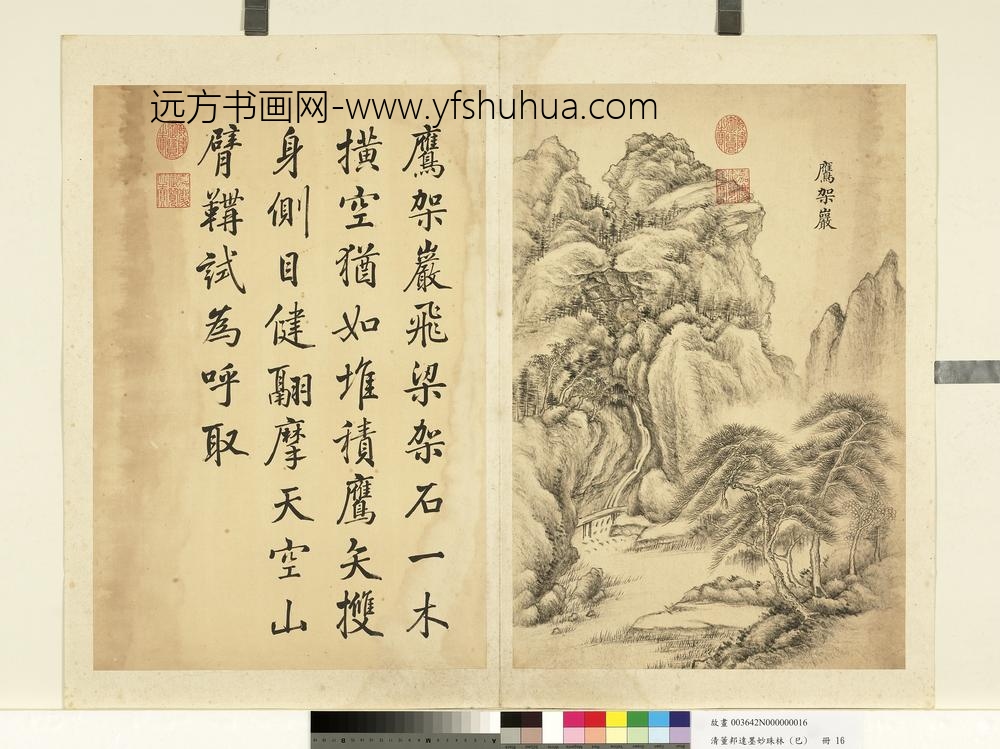 远方书画网-www.yfshuhua.com
鷹架巖
鷹架巖飛梁架石一木
撗空猶如堆積鷹矢㩳
身側目健翮摩天空山
臂鞲試為呼取
故畫 003642N000000016
清董邦達墨妙珠林（巳） 冊 16